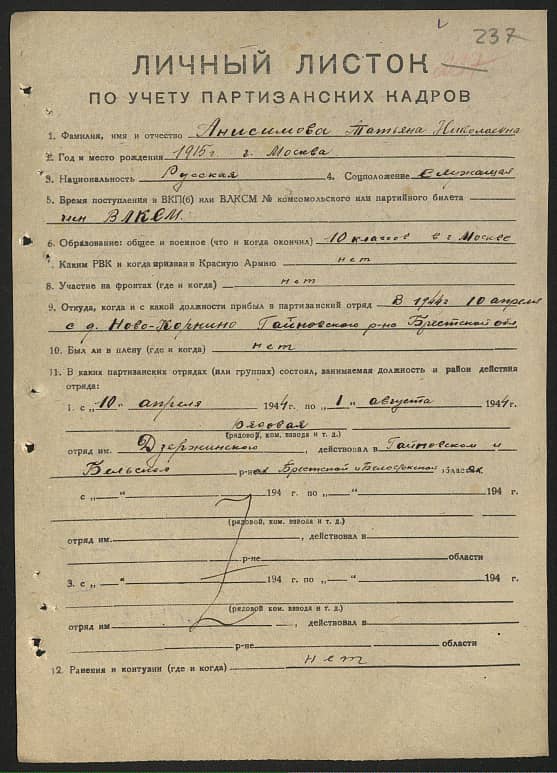 237
ЛИЧНЫЙ ЛИСТОК
ПО УЧЕТУ ПАРТИЗАНСКИХ КАДРОВ
1. Фамилия, имя и отчество Анисимова Татьяна Николаевна
2. Год и место рождения 1915 г. г. Москва
3. Национальность Русская 4. Соцположение Служащая
5. Время поступления в ВКП(б) или ВЛКСМ № комсомольского или партийного билета
член ВЛКСМ
6. Образование: общее и военное (что и когда окончил) 10 классов в г. Москве
7. Каким РВК и когда призван в Красную Армию нет
8. Участие на фронтах (где и когда) нет
9. Откуда, когда и с какой должности прибыл в партизанский отряд В 1944 г 10 апреля
с д. Ново-Корнино Гайновского р-на Брестской обл
10. Был ли в плену (где и когда) нет
11. В каких партизанских отрядах (или группах) состоял, занимаемая должность и район действия
отряда:
1. с „10" апреля 1944 г. по „1" августа 1944 г.
Рядовая
(рядовой, ком. взвода и т. д.)
отряд им. Дзержинского, действовал в Гайновском и
Бельском р-нах Брестской и Белостокской областях
с „ " 194 г. по „ " 194 г.
(рядовой, ком. взвода и т. д.)
отряд им. , действовал в
р-не области
3. с „ " 194 г. по „ " 194 г.
(рядовой, ком. взвода и т. д.)
отряд им , действовал в
р-не области
12. Ранения и контузии (где и когда) нет